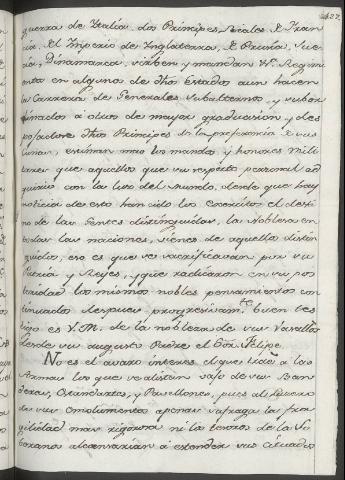 427.
guerra de Ytalia dos Principes Reales de Fran
cia. el Ymperio de Ynglaterra, de Prusia, Sue
cia, Dinamarca, sirben y mandan Vs. Regim
entos en algunos de dhos Estados aun hacen
la Carrera de Generales Subalternos, y subor
dinados a otros de mayor graduacion y des
dhos Principes de la preferencia de sus
estiman mas los mandos, y honores Mili
tares que aquellos que su respeto personal ad
quirio con la luz del Mundo, desde que hay
noticia de esto han sido los Exercitos el desti
no de las Gentes distinguidas, la Nobleza en
todas las naciones, viene de aquellos distin
guidos, eso es que se sacrificavan por su
Patria y Reyes, y que radicaron en su pos
teridad los mismos nobles pensamientos con
tinuados despues progresivam.te buen tes
tigo es V.M. de la nobleza de sus Vasallos
desde su augusto Padre el Sör. Felipe.
No es el avaro interes el que trae a las
Armas los que se alistan vajo de sus Ban
deras, Estandartes, y Pavellones, pues al Guerre
de sus emolumentos apenas sufraga la fru
gilidad mas rigorosa ni la tierras de la So
beranos alcanzarian a estender sus